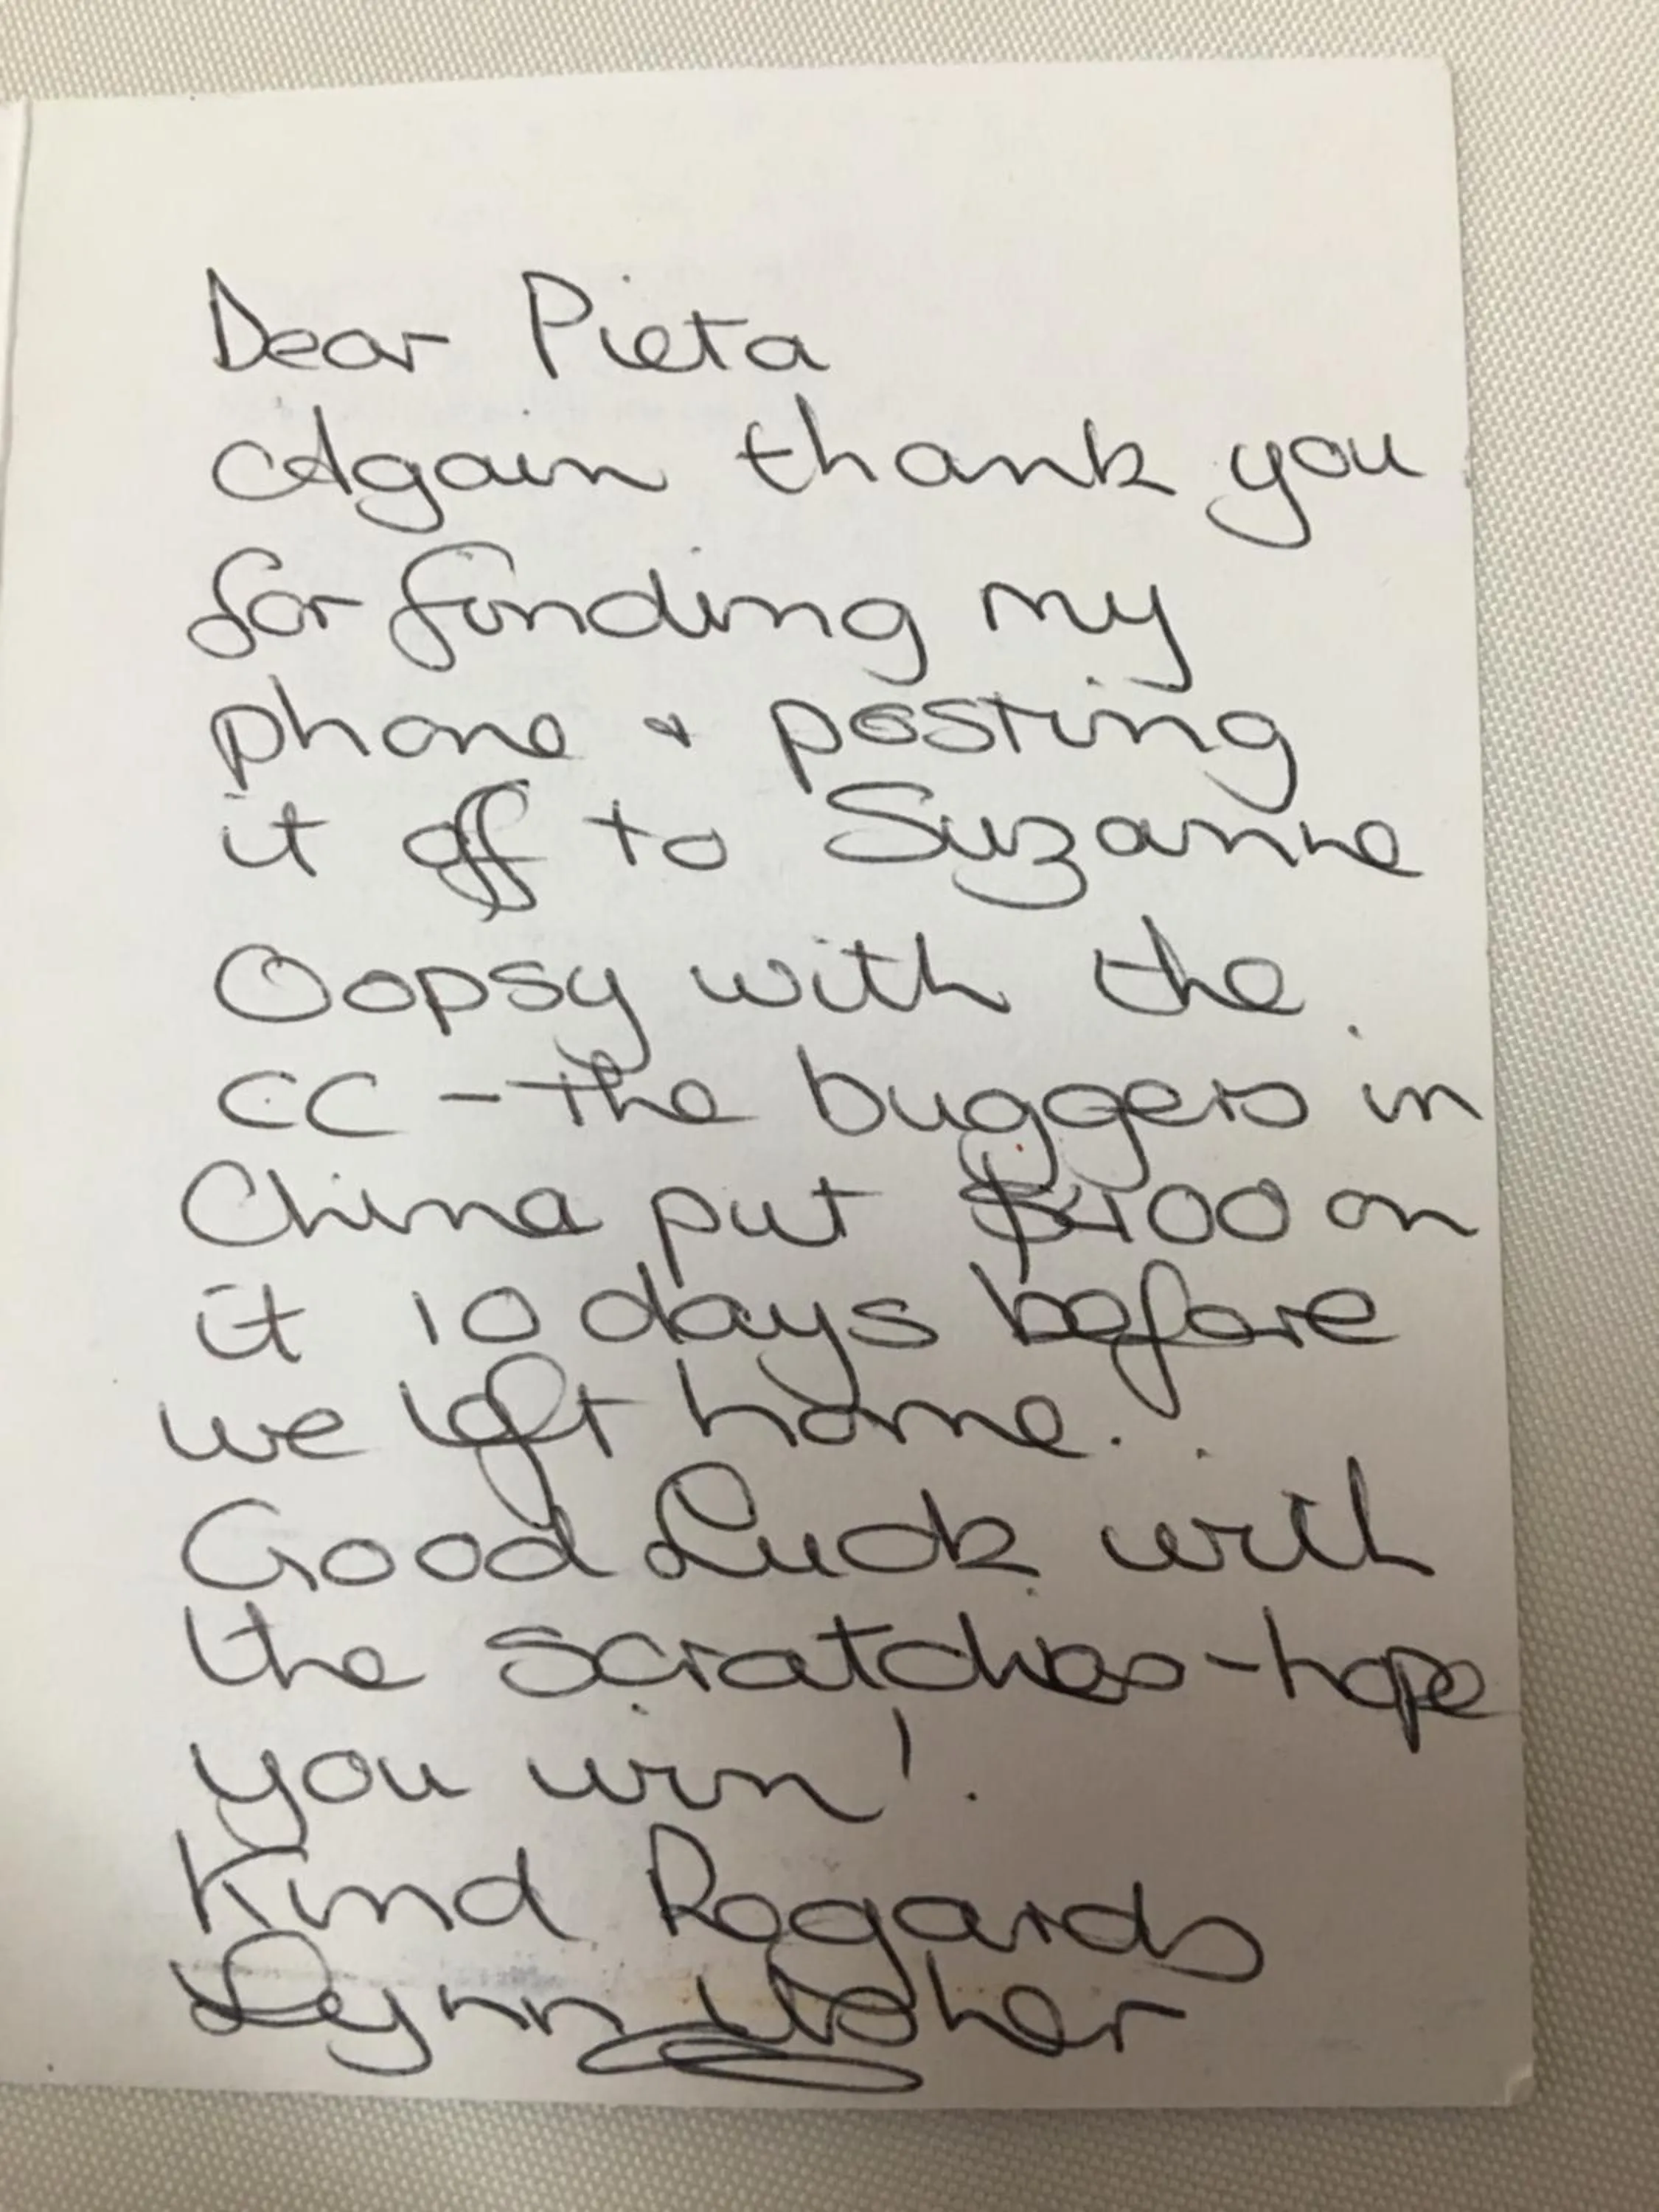 Dear Pieta
Again thank you
for funding my
phone & posting
it off to Suzanne
Oopsy with the
CC - the buggers in
China put $400 on
it 10 days before
we left home.
Good Luck with
the scratchies - hope
you win!
Kind Regards
Lynn Usher